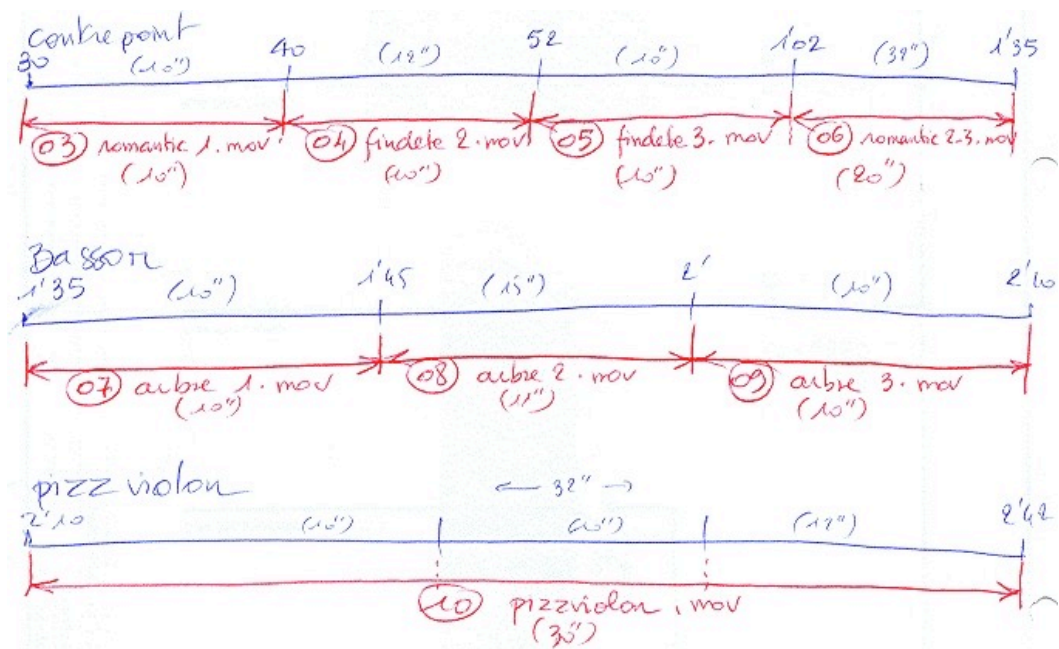 contrepoint
30 (10") 40 (12") 52 (10") 1'02 (32") 1'35
03 romantic 1.mov 04 findete 2.mov 05 findete 3.mov 06 romantic 2-3.mov
(10") (10") (10") (20")
Basson
1'35 (10") 1'45 (15") 2' (10") 2'10
07 arbre 1.mov 08 arbre 2.mov 09 arbre 3.mov
(10") (11") (10")
pizz violon ← 32" →
2'10 (10") (10") (12") 2'42
10 pizzviolon.mov
(30")